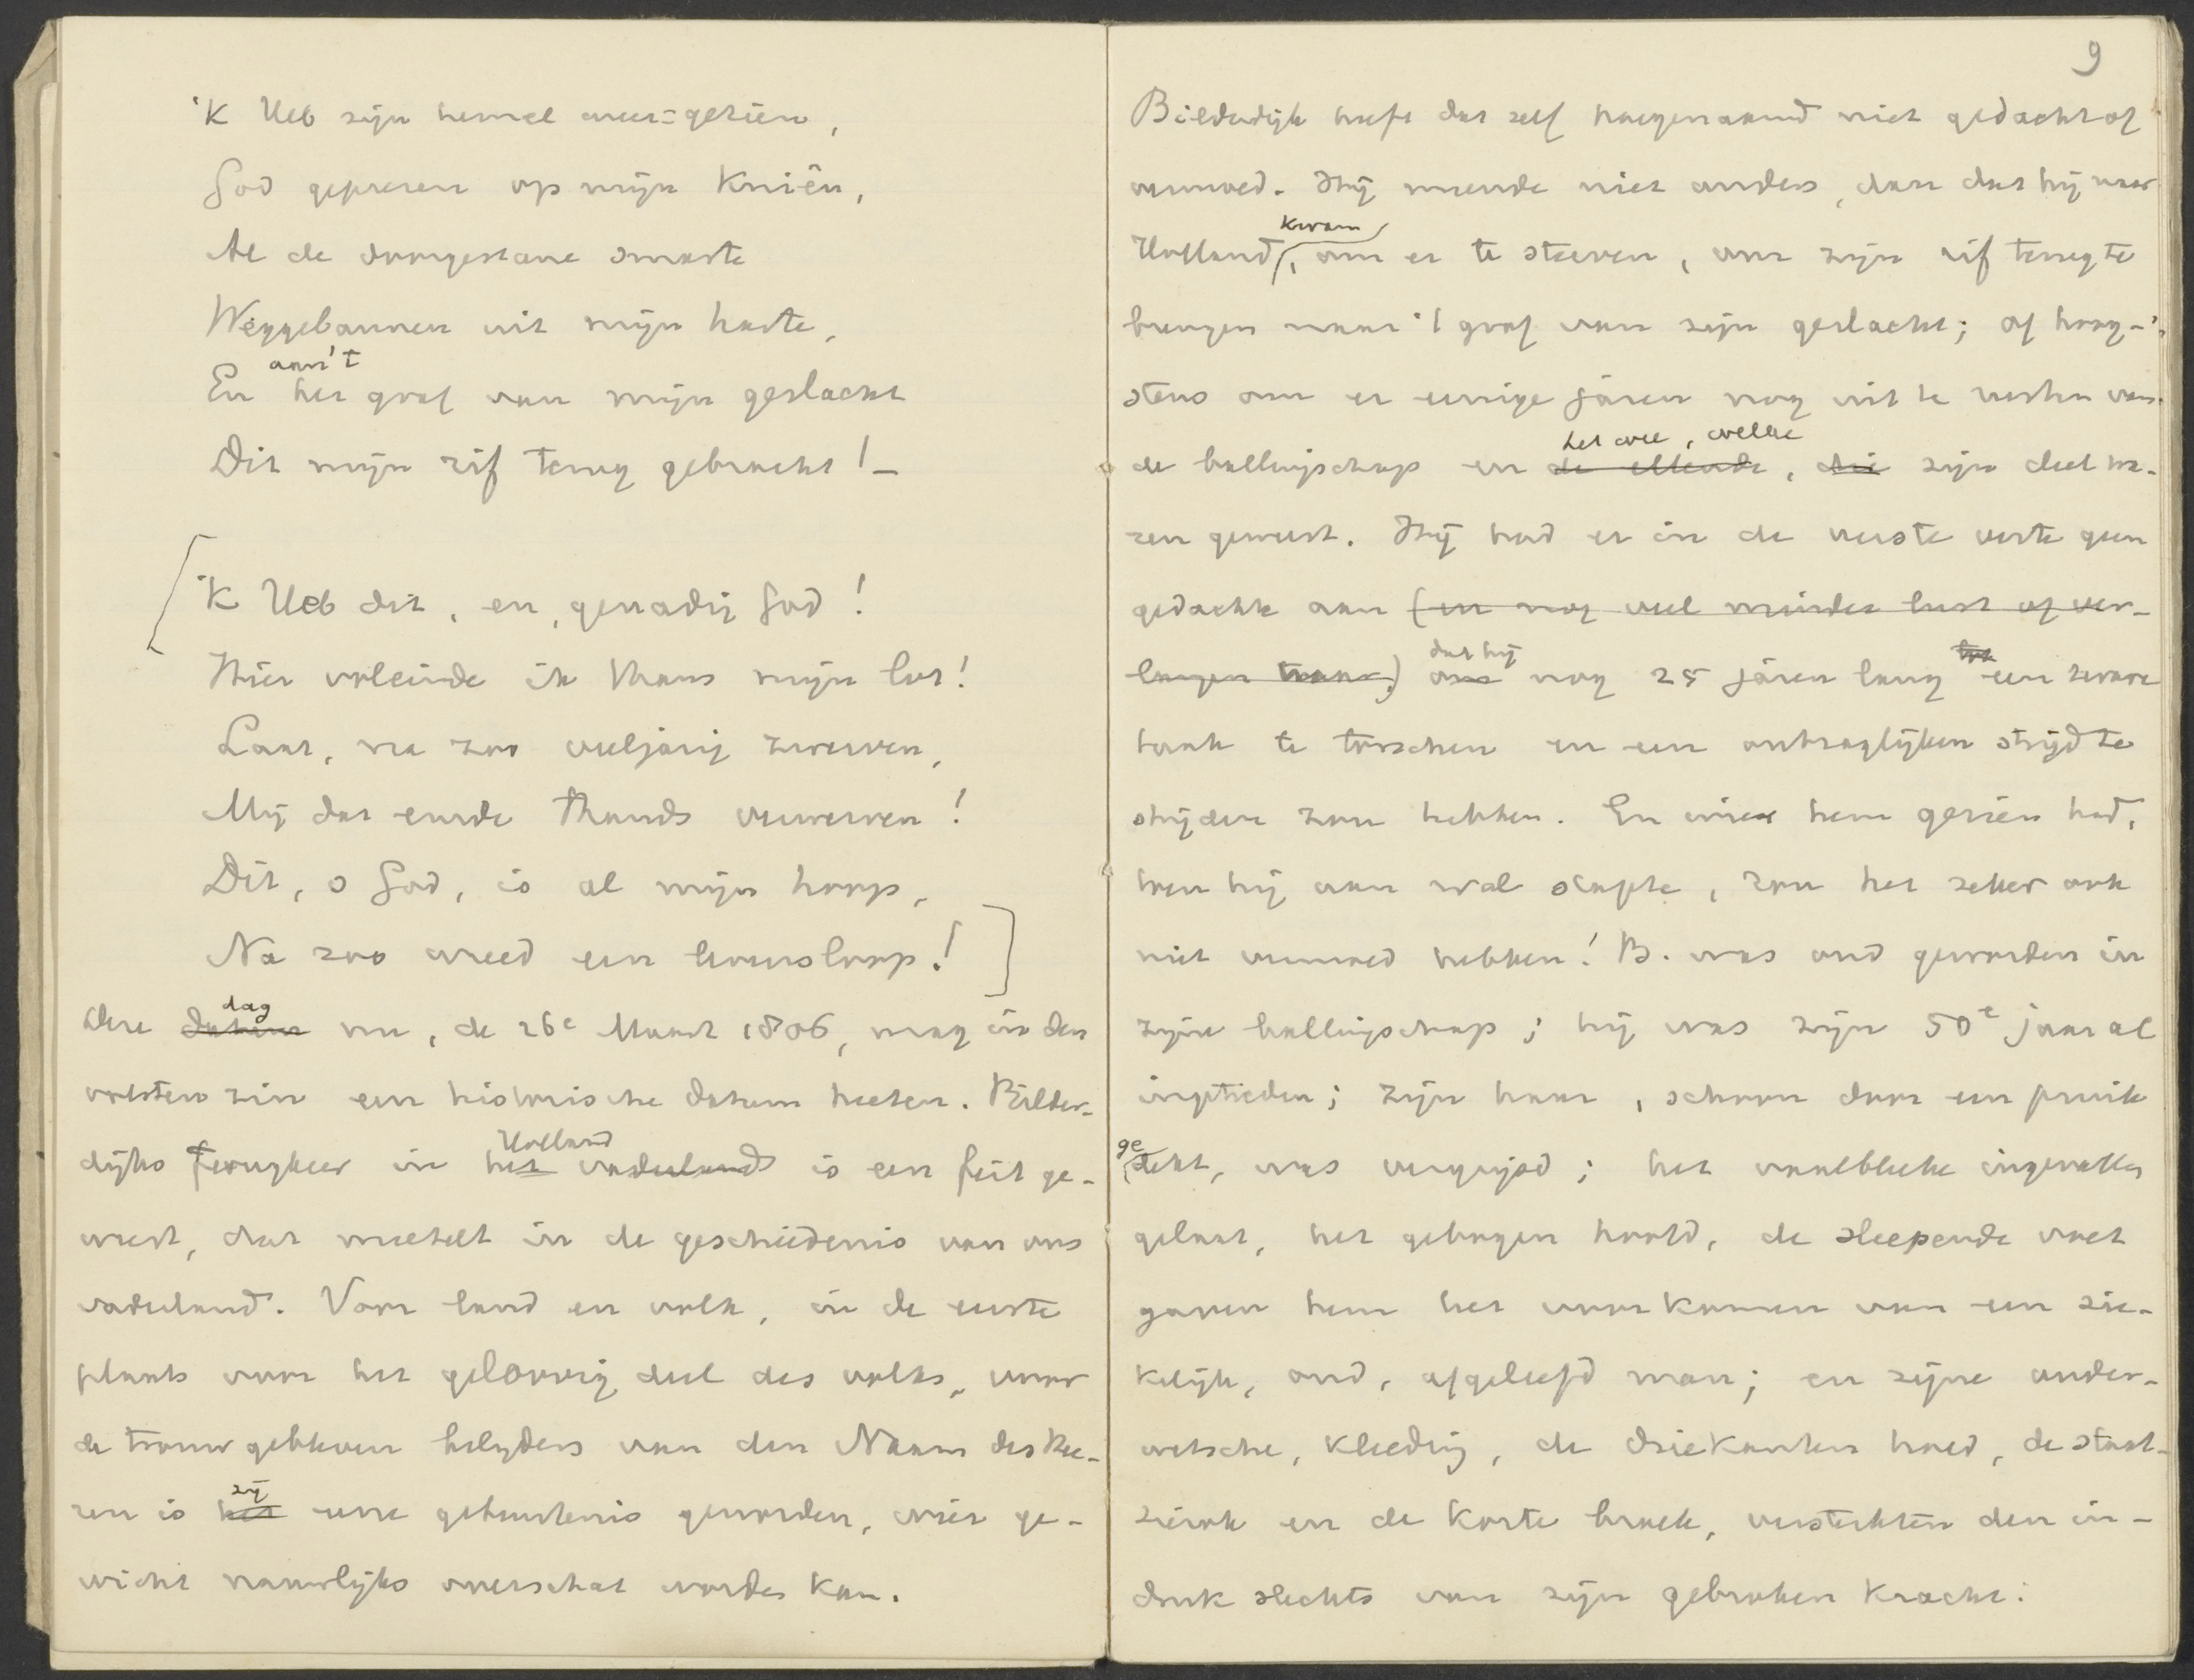 'K Heb zijn hemel weer-gezien,
God geprezen op mijn Kniën,
Al de doorgestane smarte
Weggebannen uit mijn harte,
aan 't
En het graf van mijn geslacht
Dit mijn rif terug gebracht! –
'K Heb dit, en, genadig God!
Hier voleinde ik thans mijn lot!
Laat, na zoo veeljarig zwerven,
Mij dat einde thands verwerven!
Dit, o God, is al mijn hoop,
Na zoo wreed een levensloop!
dag
Deze datum nu, de 26e Maart 1806, mag in den
volsten zin een historische datum heeten. Bilder-
Holland
dijks terugkeer in het vaderland is een feit ge-
weest, dat meetelt in de geschiedenis van ons
vaderland. Voor land en volk, in de eerste
plaats voor het geloovig deel des volks, voor
de trouw gebleven belijders van den Naam des Hee-
zij
ren is het eene gebeurtenis geworden, wier ge-
wicht nauwlijks overschat worden kan.
9
Bilderdijk heeft dat zelf hoegenaamd niet gedacht of
vermoed. Hij meende niet anders, dan dat hij naar
kwam
Holland, om er te sterven, om zijn rif terug te
brengen naar 't graf van zijn geslacht; of hoog-
stens om er eenige jaren nog uit te rusten van
het wee, welke
de ballingschap en de ellende, die zijn deel wa-
ren geweest. Hij had er in de verste verte geen
gedachte aan (en nog veel minder lust of ver-
dat hij
langen naar) om nog 25 jaren lang een zware
taak te torschen en een ontzaglijken strijd te
strijden zou hebben. En wie hem gezien had,
toen hij aan wal stapte, zou het zeker ook
niet vermoed hebben! B. was oud geworden in
zijne ballingschap; hij was zijn 50e jaar al
ingetreden; zijn haar, schoon door een pruik
ge
dekt, was vergrijsd; het vaalbleeke ingevallen
gelaat, het gebogen hoofd, de sleepende voet
gaven hem het voorkomen van een zie-
kelijk, oud, afgeleefd man; en zijne ouder-
wetsche, kleedij, de driekanten hoed, de staat-
sierok en de korte broek, versterkten den in-
druk slechts van zijn gebroken kracht.